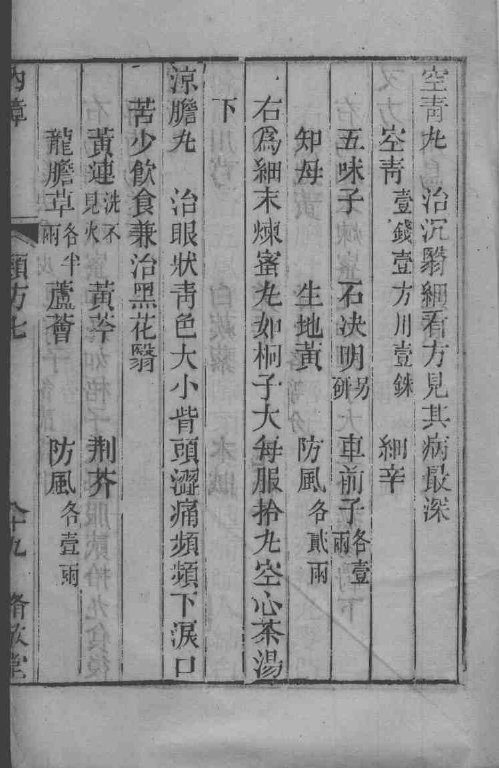 空青丸　治沉翳細看方見其病最深
空青壹錢壹方川壹銖　細辛
五味子　石決明另研　車前子各壹兩
知母　生地黃　防風各貳兩
右爲細末煉蜜丸如桐子大每服拾丸空心茶湯
下
涼膽丸　治眼狀青色大小眥頭澀痛頻頻下淚口
苦少飲食兼治黑花翳
黃連洗不見火　黃芩　荆芥
龍膽草各半兩　蘆薈　防風各壹兩
内障　類方七　八十九